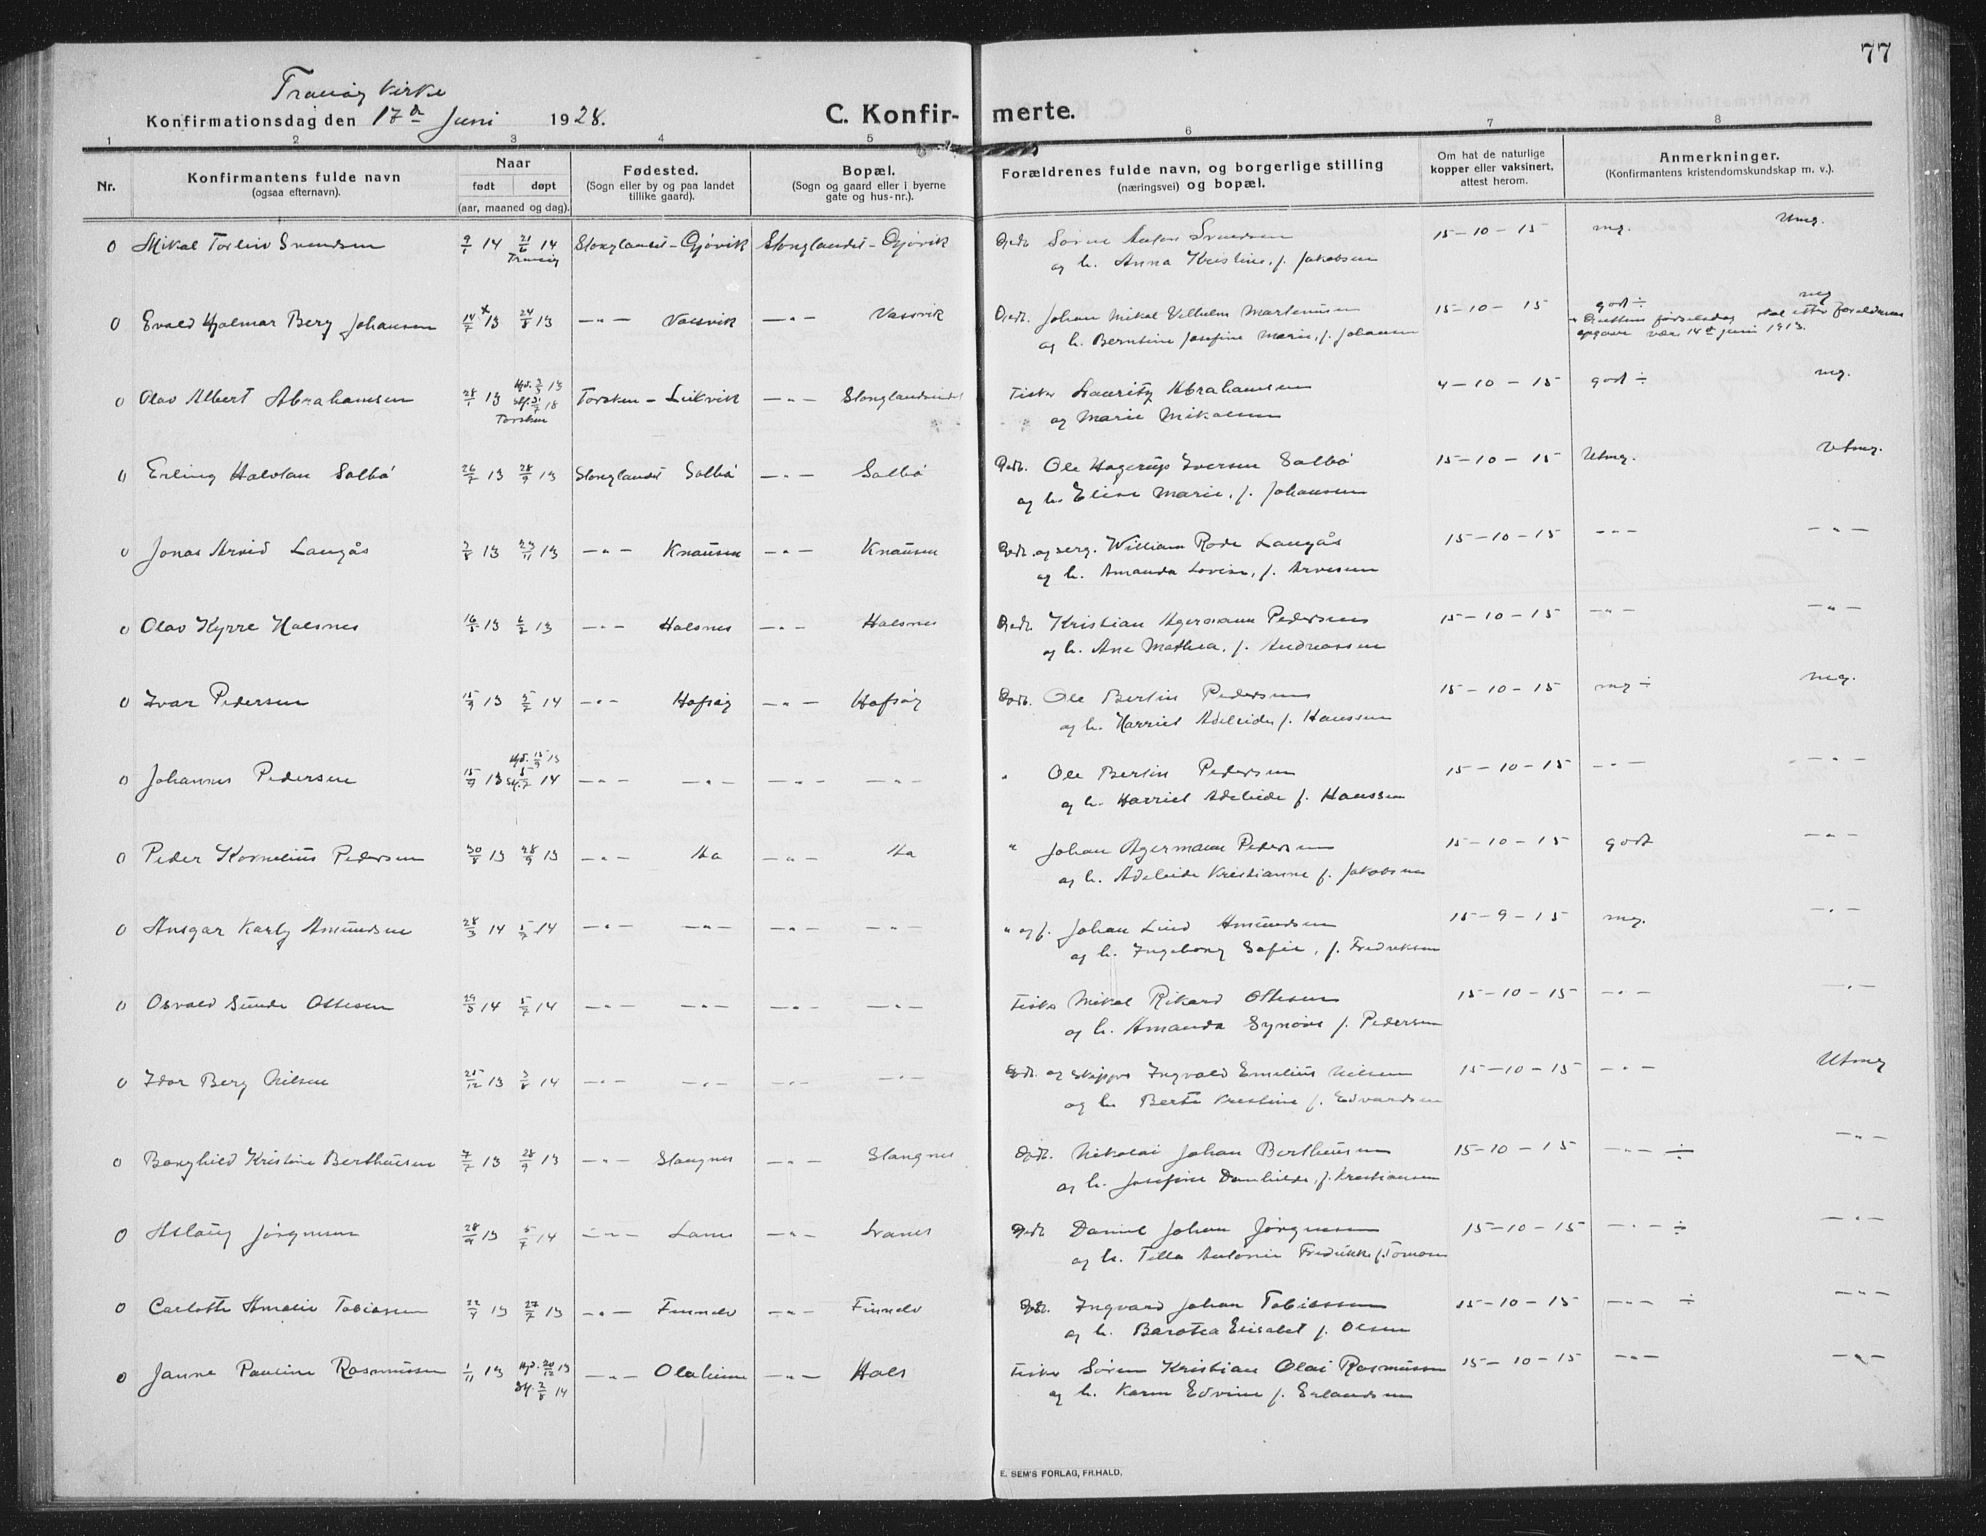 77
Tranøy Kirke
Konfirmationsdag den 17de Juni 1928.
C. Konfirmerte.
1 2 3 4 5 6 7 8
Nr.
Konfirmantens fulde navn
(ogsaa efternavn).
Naar
født døpt
(aar, maaned og dag).
Fødested.
(Sogn eller by og paa landet
tillike gaard).
Bopæl.
(Sogn og gaard eller i byerne
gate og hus-nr.).
Forældrenes fulde navn, og borgerlige stilling
(næringsvei) og bopæl.
Om hat de naturlige
kopper eller vaksinert,
attest herom.
Anmerkninger.
(Konfirmantens kristendomskundskap m. v.).
0 Mikal Torleiv Svendsen 14 21/6 14 Stonglandet - Gjövik Stonglandet - Gjövik Sørine Anton Svendsen 15-10-15 mg. Utmg.
Tranøy og h. Anna Kristine, f. Jakobsen
0 Evald Hjalmar Berg Johansen 14/7 13 24/8 13 -"- Vassvik -"- Vassvik Johan Mikal Vilhelm Martinussen 15-10-15 godt ÷ mg
og h. Berntine Josefine Marie, f. Johansen fødselsdag skal efter forældrenes
opgave være 14de juni 1913.
0 Olav Albert Abrahamsen 28/1 13 Torsken - Leikvik -"- Stonglandseidet Fisker Lauritz Abrahamsen 4-10-15 godt ÷ mg.
Torsken og Marie Mikalsen
0 Erling Halvdan Solbö 26/7 13 28/9 13 Stonglandet Solbö -"- Solbö Gdbr. Ole Hagerup Iversen Solbö 15-10-15 Utmg. Utmg.
og h. Elise Marie, f. Johansen
0 Jonas Arvid Langås 3/8 13 23/11 13 -"- Knausen -"- Knausen Gdbr. og serg. William Rode Langås 15-10-15 -"- -"-
og h. Amanda Lovise, f. Arnesen
0 Olav Kyrre Halsnes 16/5 13 6/7 13 -"- Halsnes -"- Halsnes Gdbr. Kristian Agermann Pedersen 15-10-15 -"- -"-
og h. Ane Mathea, f. Andreassen
0 Ivar Pedersen 15/9 13 5/7 14 -"- Hofsøy -"- Hofsøy Gdbr. Ole Bertin Pedersen 15-10-15 mg ÷ mg.
og h. Harriet Adeleide f. Hanssen
0 Johannes Pedersen 15/9 13 Hjd. 15/9 13 Stf. 5/7 14 -"- -"- -"- -"- " Ole Bertin Pedersen 15-10-15 -"- -"-
og h. Harriet Adeleide f. Hanssen
0 Peder Kornelius Pedersen 30/8 13 28/9 13 -"- Aa -"- Aa " Johan Agermann Pedersen 15-10-15 godt -"-
og h. Adeleide Kristianne f. Jakobsen
0 Ansgar Karly Amundsen 28/3 14 5/7 14 -"- -"- -"- -"- " og f. Johan Lind Amundsen 15-9-15 mg. -"-
og h. Ingeborg Sofie, f. Fredriksen
0 Osvald Sunde Ottesen 29/5 14 5/7 14 -"- -"- -"- -"- Fisker Mikal Rikard Ottesen 15-10-15 -"- -"-
og h. Amanda Synöve f. Pedersen
0 Idar Berg Nilsen 25/12 13 3/8 14 -"- -"- -"- -"- Gdbr. og Skipper Ingvald Emelius Nilsen 15-10-15 -"- Utmg
og h. Berte Kristine f. Edvardsen
0 Borghild Kristine Berthusen 7/7 13 28/9 13 -"- Stangnes -"- Stangnes Gdbr. Nikolai Johan Berthusen 15-10-15 -"- ÷ -"-
og h. Josefine Danhilde, f. Kristiansen
0 Aslaug Jørgensen 28/9 13 5/7 14 -"- Lanes -"- Gdbr. Daniel Johan Jørgensen 15-10-15 -"- ÷ -"-
og h. Tella Antonie Fredrikke f. Tomassen
0 Carlotte Amalie Tobiassen 22/4 13 27/7 13 -"- Finnelv -"- Finnelv Gdbr. Ingvard Johan Tobiassen 15-10-15 -"- ÷ -"-
og h. Barotea Elisabet f. Olsen
0 Janne Pauline Rasmussen 1/11 13 Hjd. 20/12 13 -"- Olaheim -"- Hals Fisker Søren Kristian Olai Rasmussen 15-10-15 -"- -"-
Stf. 2/8 14 og h. Karen Edvine f. Erlandsen
E. SEM'S FORLAG, FR.HALD.